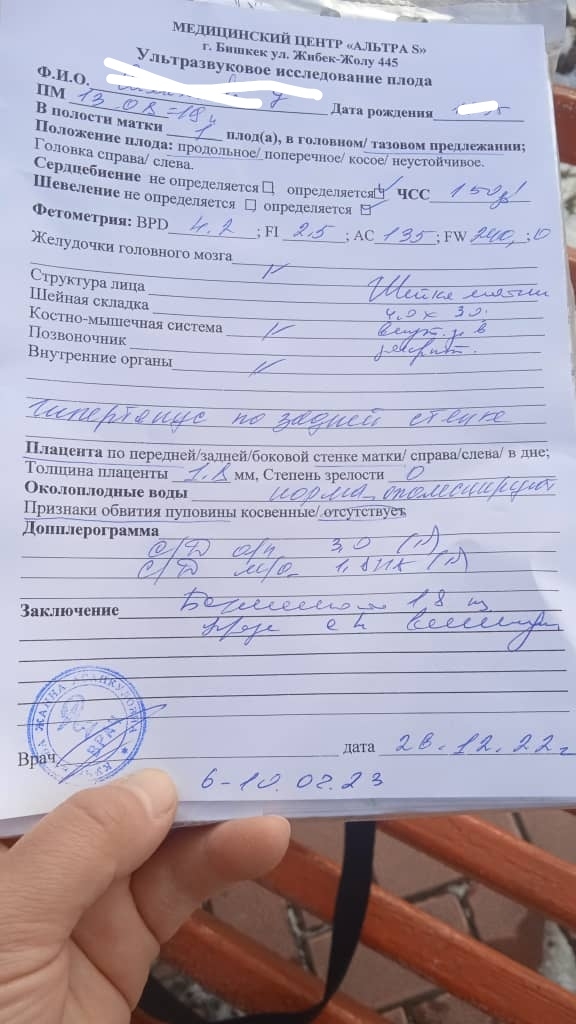 МЕДИЦИНСКИЙ ЦЕНТР «АЛЬТРА S»
г. Бишкек ул. Жибек-Жолу 445
Ультразвуковое исследование плода
Ф.И.О.
ПМ 13.08 = 19 Дата рождения
В полости матки 1 плод(а), в головном/ тазовом предлежании;
Положение плода: продольное/ поперечное/ косое/ неустойчивое.
Головка справа/ слева.
Сердцебиение не определяется определяется ЧСС 150
Шевеление не определяется определяется
Фетометрия: BPD 4.2 ; Fl 2.5 ; AC 135 ; FW 240, ;
Желудочки головного мозга
Структура лица Шейка матки
Шейная складка 4.0 х 3.0
Костно-мышечная система
Позвоночник
Внутренние органы
Гипертонус по задней стенке
Плацента по передней/задней/боковой стенке матки/ справа/слева/ в дне;
Толщина плаценты 1.8 мм, Степень зрелости 0
Околоплодные воды норма
Признаки обвития пуповины косвенные/ отсутствует
Допплерограмма
С/Д а/п 3,0 (N)
С/Д м/а (N)
Заключение 18
Врач дата 28.12.22г
6-10.02.23